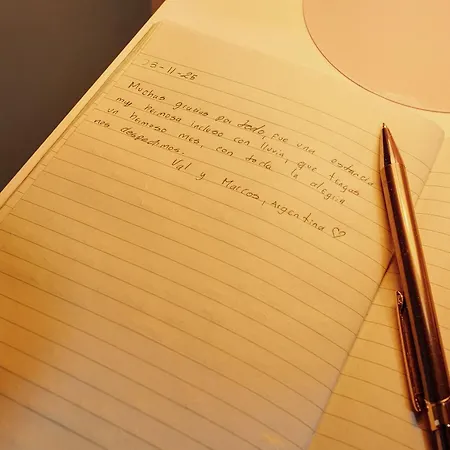 23-11-25
Muchas gracias por todo, fue una estancia
muy hermosa incluso con lluvia, que tengas
un hermoso mes, con toda la alegria
nos despedimos.
Val y Marcos, Argentina ♡